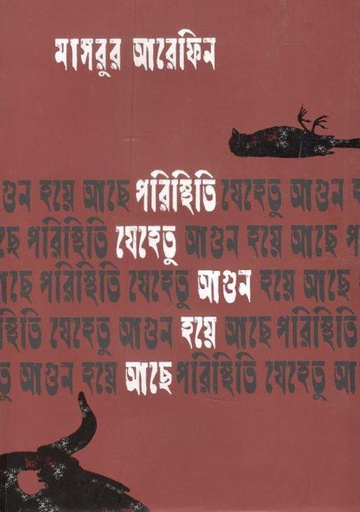 মাসরুর আরেফিন
গুন হয়ে আছে পরিস্থিতি যেহেতু আগুন হ
ছে পরিস্থিতি যেহেতু আগুন হয়ে আছে প
াছে পরিস্থিতি যেহেতু আগুন হয়ে আছে
স্থিতি যেহেতু আগুন হয়ে আছে পরিস্থিতি
তু আগুন হয়ে আছে পরিস্থিতি যেহেতু আগু